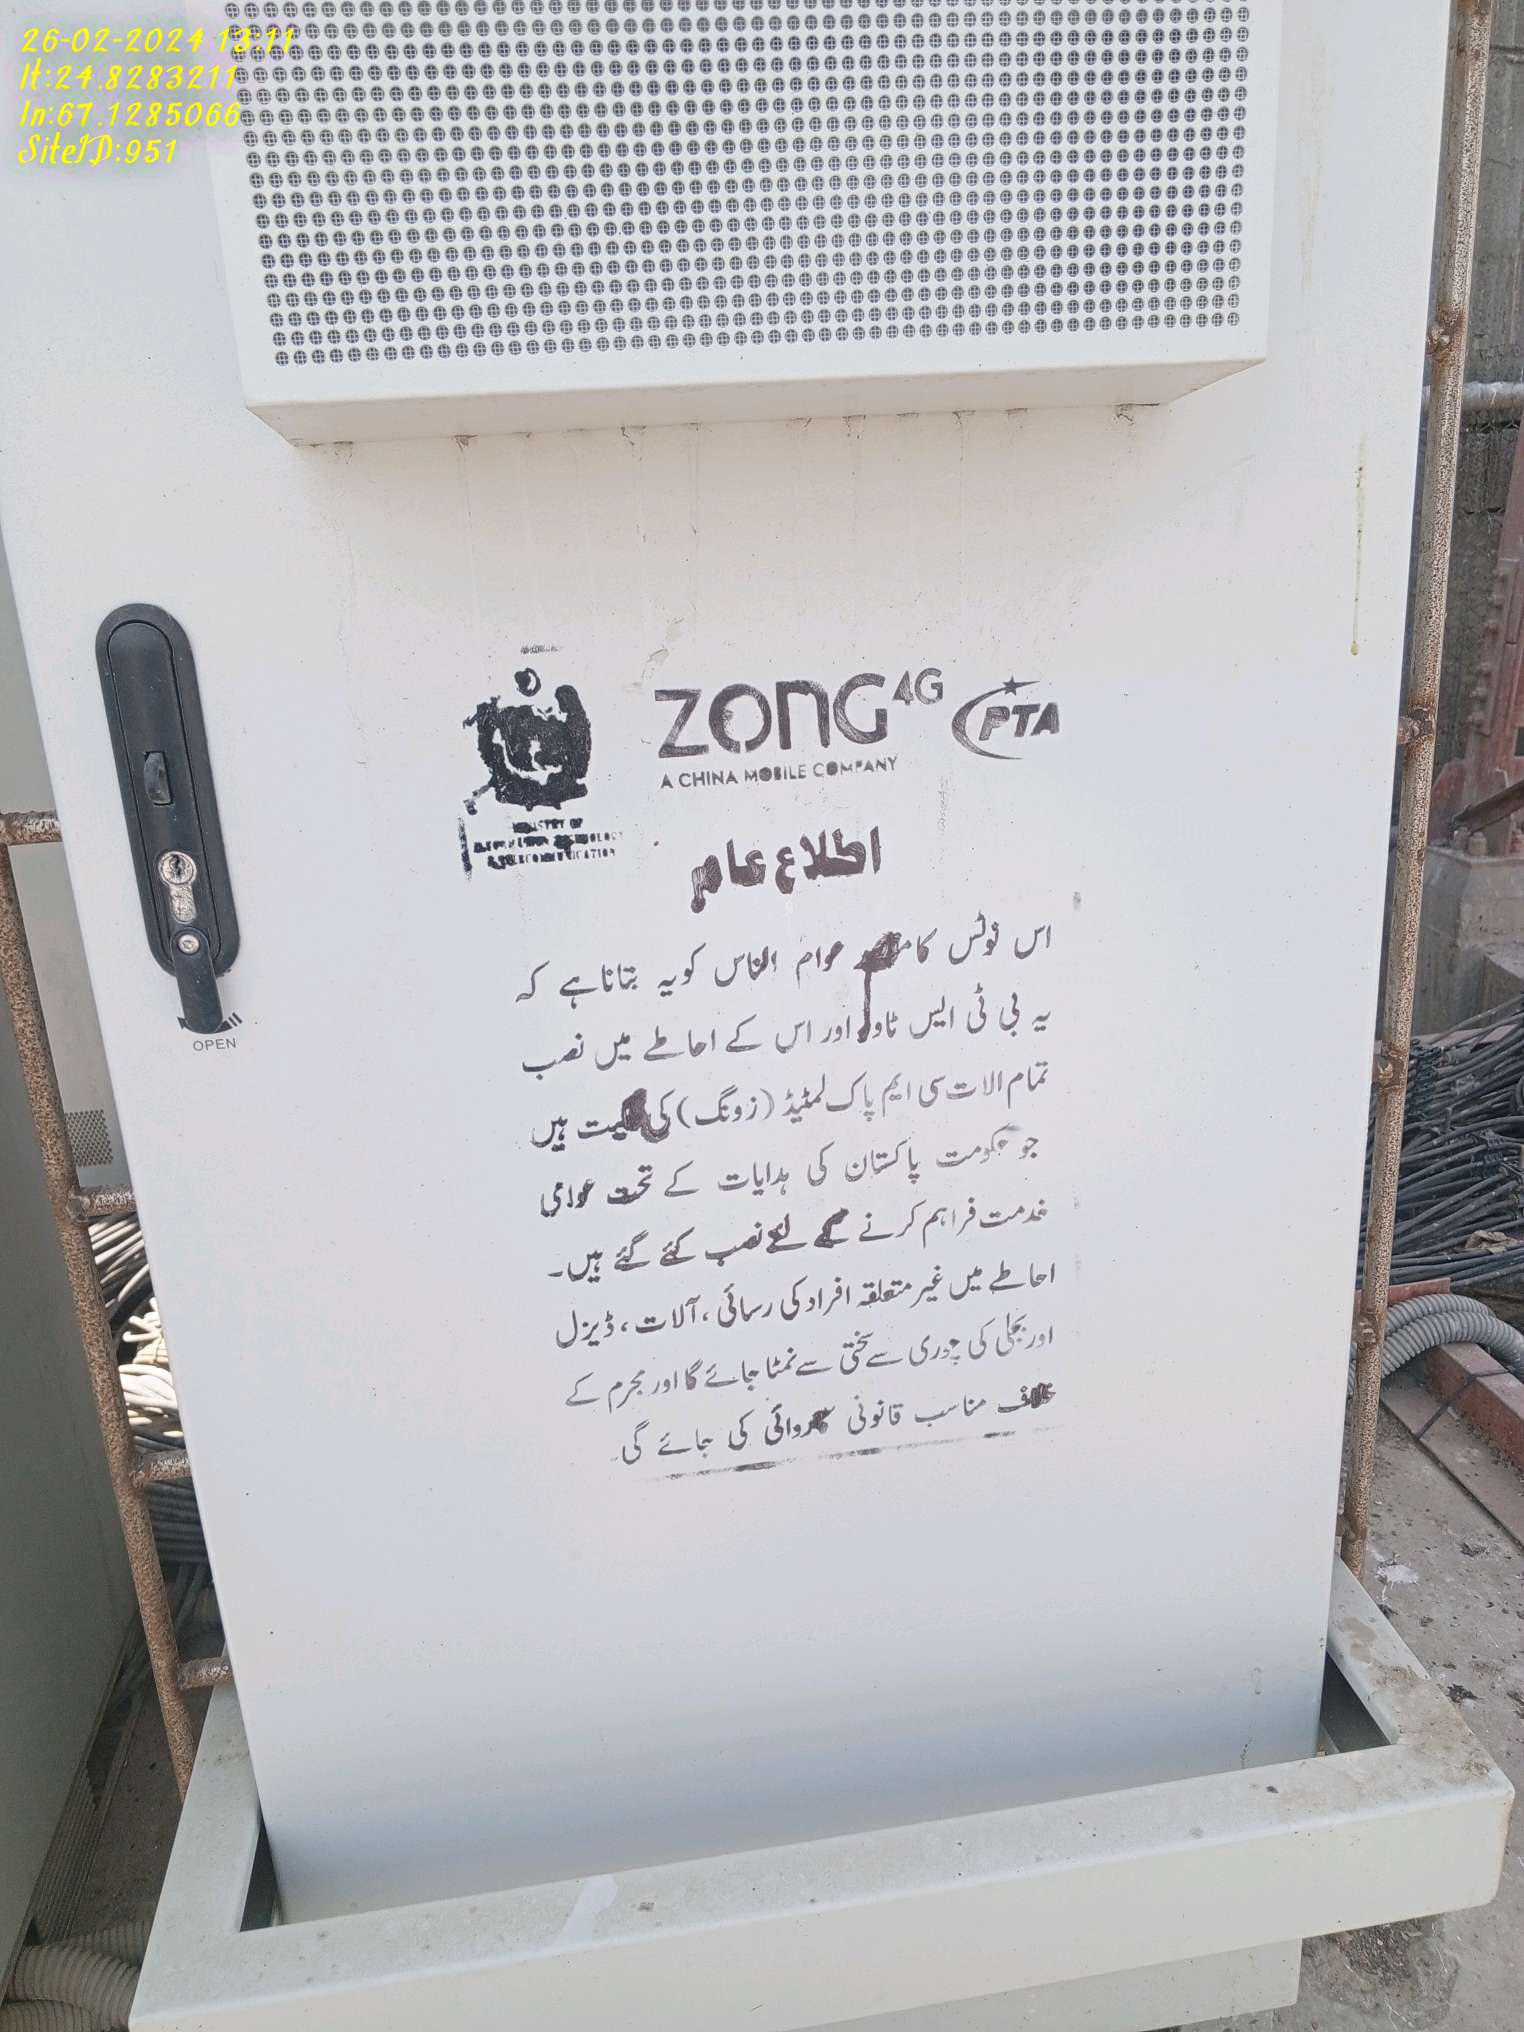 26-02-2024 13:11
lt:24.8283211
ln:67.1285066
SiteID:951
ZONG 4G
A CHINA MOBILE COMPANY
PTA
MINISTRY OF
INFORMATION TECHNOLOGY
& TELECOMMUNICATION
اطلاع عام
اس نوٹس کا عوام الناس کو یہ بتانا ہے کہ
یہ بی ٹی ایس ٹاور اور اس کے احاطے میں نصب
تمام الات سی ایم پاک لمٹیڈ (زونگ) کی ہیں
جو حکومت پاکستان کی ہدایات کے تحت عوامی
خدمت فراہم کرنے کے لئے نصب کئے گئے ہیں۔
احاطے میں غیر متعلقہ افراد کی رسائی، آلات، ڈیزل
اور بجلی کی چوری سے سختی سے نمٹا جائے گا اور مجرم کے
خلاف مناسب قانونی کاروائی کی جائے گی۔
OPEN